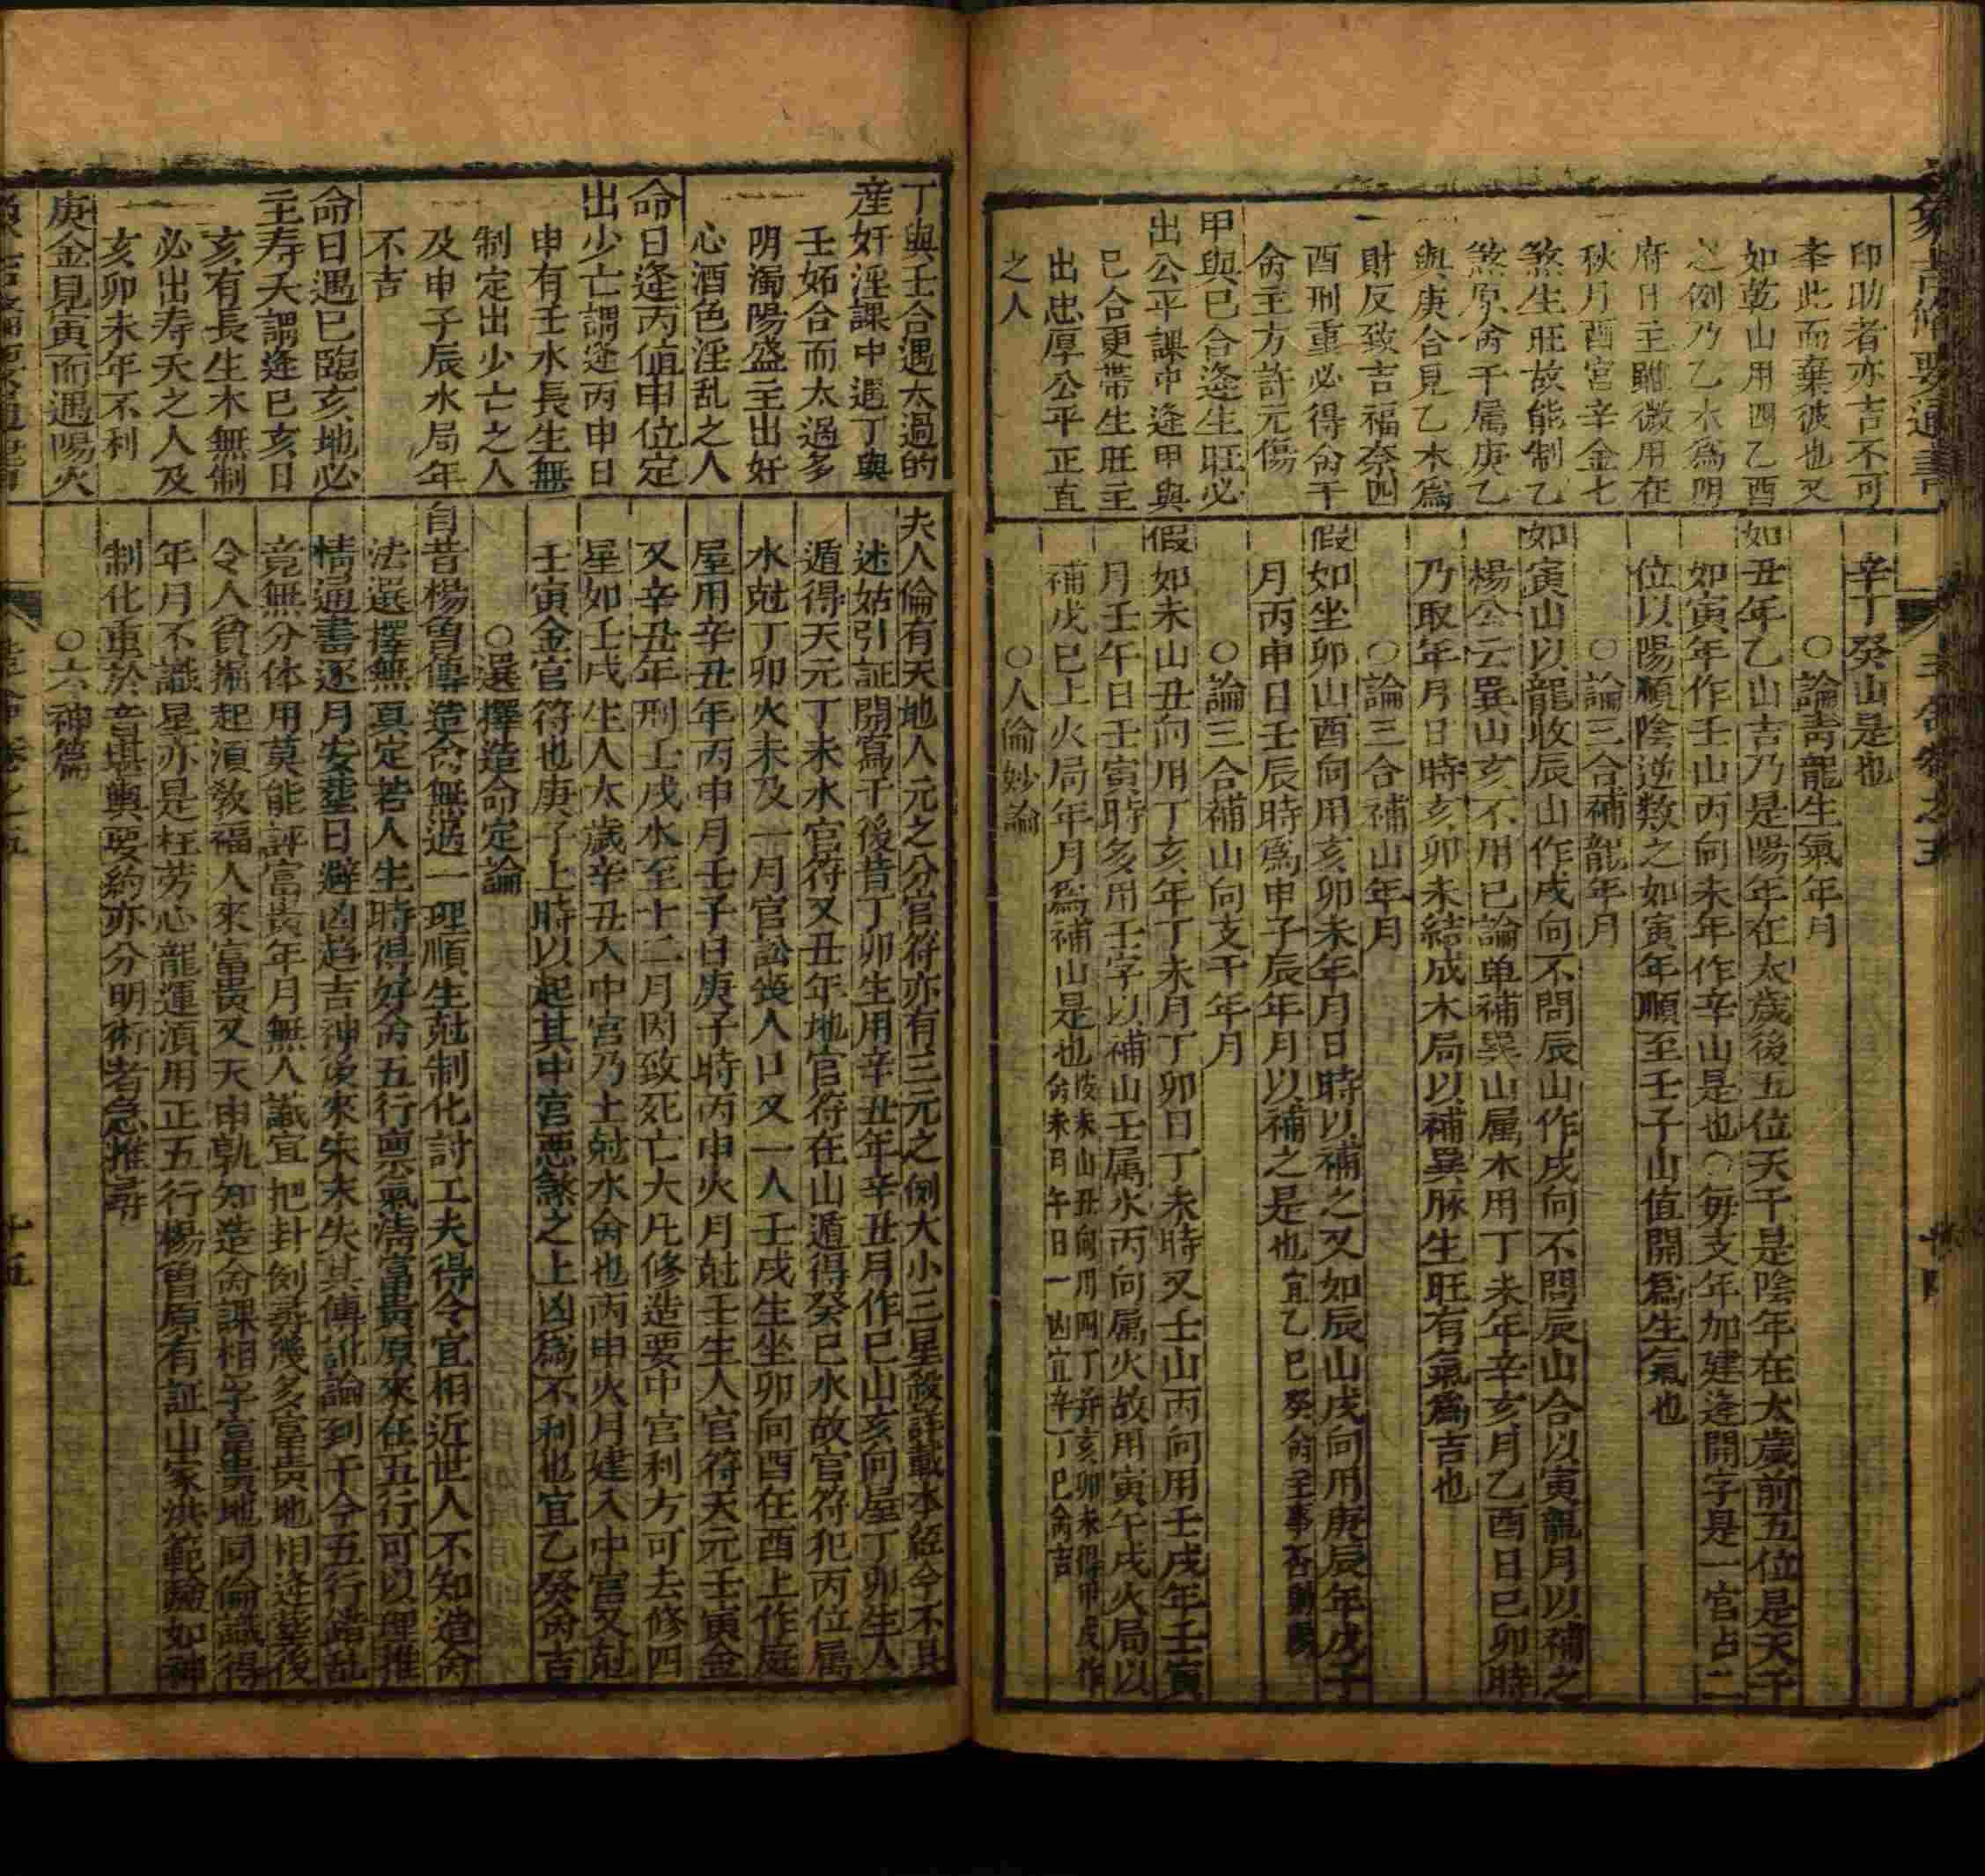 印助者亦吉不可
奉此而棄彼也又
如乾山用四乙酉
之例乃乙木為明
府日主雖微用在
秋月酉宮辛金七
煞生旺故能制乙
煞原命干属庚乙
與庚合見乙木為
財反致吉福奈四
酉刑重必得命干
命主方許元傷
甲與巳合逢生旺必
出公平課中逢甲與
巳合更帶生旺主
出忠厚公平正直
之人
辛丁癸山是也
○論青龍生氣年月
如丑年乙山吉乃是陽年在太歲後五位天干是陰年在太歲前五位是天干
如寅年作壬山丙向未年作辛山是也○每支年加建逢開字是一官占二
位以陽順陰逆数之如寅年順至壬子山值開為生氣也
○論三合補龍年月
如寅山以龍收辰山作戌向不問辰山作戌向不問辰山合以寅龍月以補之
楊公云巽山亥不用巳論单補巽山属木用丁未年辛亥月乙酉日巳卯時
乃取年月日時亥卯未結成木局以補巽脉生旺有氣為吉也
○論三合補山年月
假如坐卯山酉向用亥卯未年月日時以補之又如辰山戌向用庚辰年戊子
月丙申日壬辰時為申子辰年月以補之是也宜乙巳癸命主事
○論三合補山向支干年月
假如未山丑向用丁亥年丁未月丁卯日丁未時又壬山丙向用壬戌年壬寅
月壬午日壬寅時多用壬字以補山壬属水丙向属火故用寅午戌火局以
補戊巳上火局年月為補山是也
○人倫妙論
丁與壬合遇太過的
產奸淫課中遇丁與
壬妬合而太過多
陰濁陽盛主出奸
心酒色淫乱之人
命日逢丙值申位定
出少亡謂逢丙申日
申有壬水長生無
制定出少亡之人
及申子辰水局年
不吉
命日遇巳臨亥地必
主寿夭謂逢巳亥日
亥有長生木無制
必出寿夭之人及
亥卯未年不利
庚金見寅而遇陽火
夫人倫有天地人元之分官符亦有三元之例大小三星殺詳載本經今不具
述姑引証開寫于後昔丁卯生用辛丑年辛丑月作巳山亥向屋丁卯生人
遁得天元丁未水官符又丑年地官符在山遁得癸巳水故官符犯丙位属
水尅丁卯火未及一月官訟喪人口又一人壬戌生坐卯向酉在酉上作庭
屋用辛丑年丙申月壬子日庚子時丙申火月尅壬生人官符天元壬寅金
又辛丑年刑壬戌水至十二月因致死亡大凡修造要中宮利方可去修四
星如壬戌生人太歲辛丑入中宮乃土尅水命也丙申火月建入中宮又尅
壬寅金官符也庚子上時以起其中宮惡煞之上凶為不利也宜乙癸命吉
○選擇造命定論
自昔楊曾傳造命無過一理順生尅制化討工夫得令宜相近世人不知造命
法選擇無真定若人生時得好命五行禀氣清富貴原來在五行可以理推
情通書逐月安塟日避凶趋吉神後來朱未失其傳訛論到于今五行錯乱
竟無分体用莫能評富貴年月無人識宜把卦例尋幾多富貴地相逢塟後
令人貧掘起湏敎福人來富貴又天申孰知造命課相孚富貴地同倫識得
年月不識星亦是枉劳心龍運湏用正五行楊曾原有証山家洪範驗如神
制化重於音堪輿要約亦分明術者急推尋
○六神篇